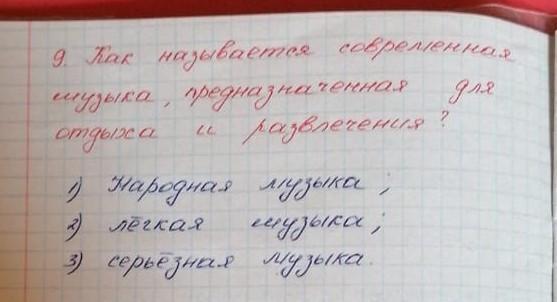 9. Как называется современная
музыка, предназначенная для
отдыха и развлечения?
1) Народная музыка;
2) лёгкая музыка;
3) серьёзная музыка.